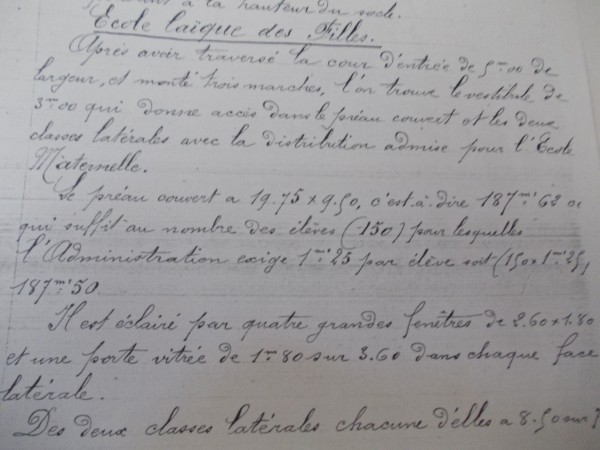 à la hauteur du socle.
Ecole laïque des Filles.
Après avoir traversé la cour d'entrée de 5m00 de
largeur, et monté trois marches, l'on trouve le vestibule de
3m00 qui donne accès dans le préau couvert et les deux
classes latérales avec la distribution admise pour l'École
Maternelle.
Le préau couvert a 19.75 x 9.50, c'est-à-dire 187m²62 ce
qui suffit au nombre des élèves (150) pour lesquelles
l'Administration exige 1m²25 par élève soit (150 x 1m²25)
187m²50
Il est éclairé par quatre grandes fenêtres de 2.60 x 1.80
et une porte vitrée de 1m80 sur 3.60 dans chaque face
latérale.
Des deux classes latérales chacune d'elles a 8.50 sur